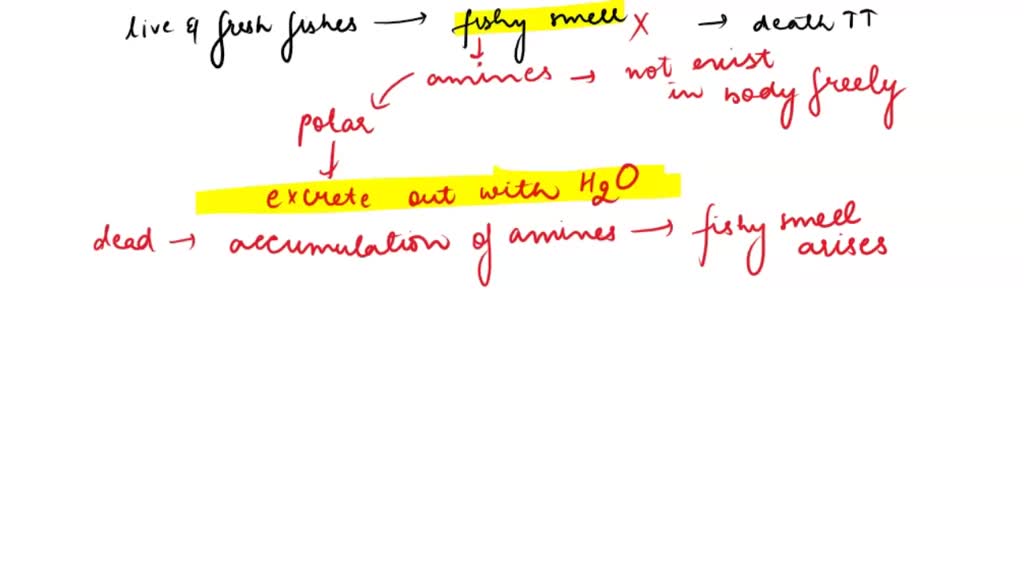 live & fresh fishes → fishy smell X → death TT
↓
amines → not exist in body freely
polar
↓
excrete out with H2O
dead → accumulation of amines → fishy smell arises